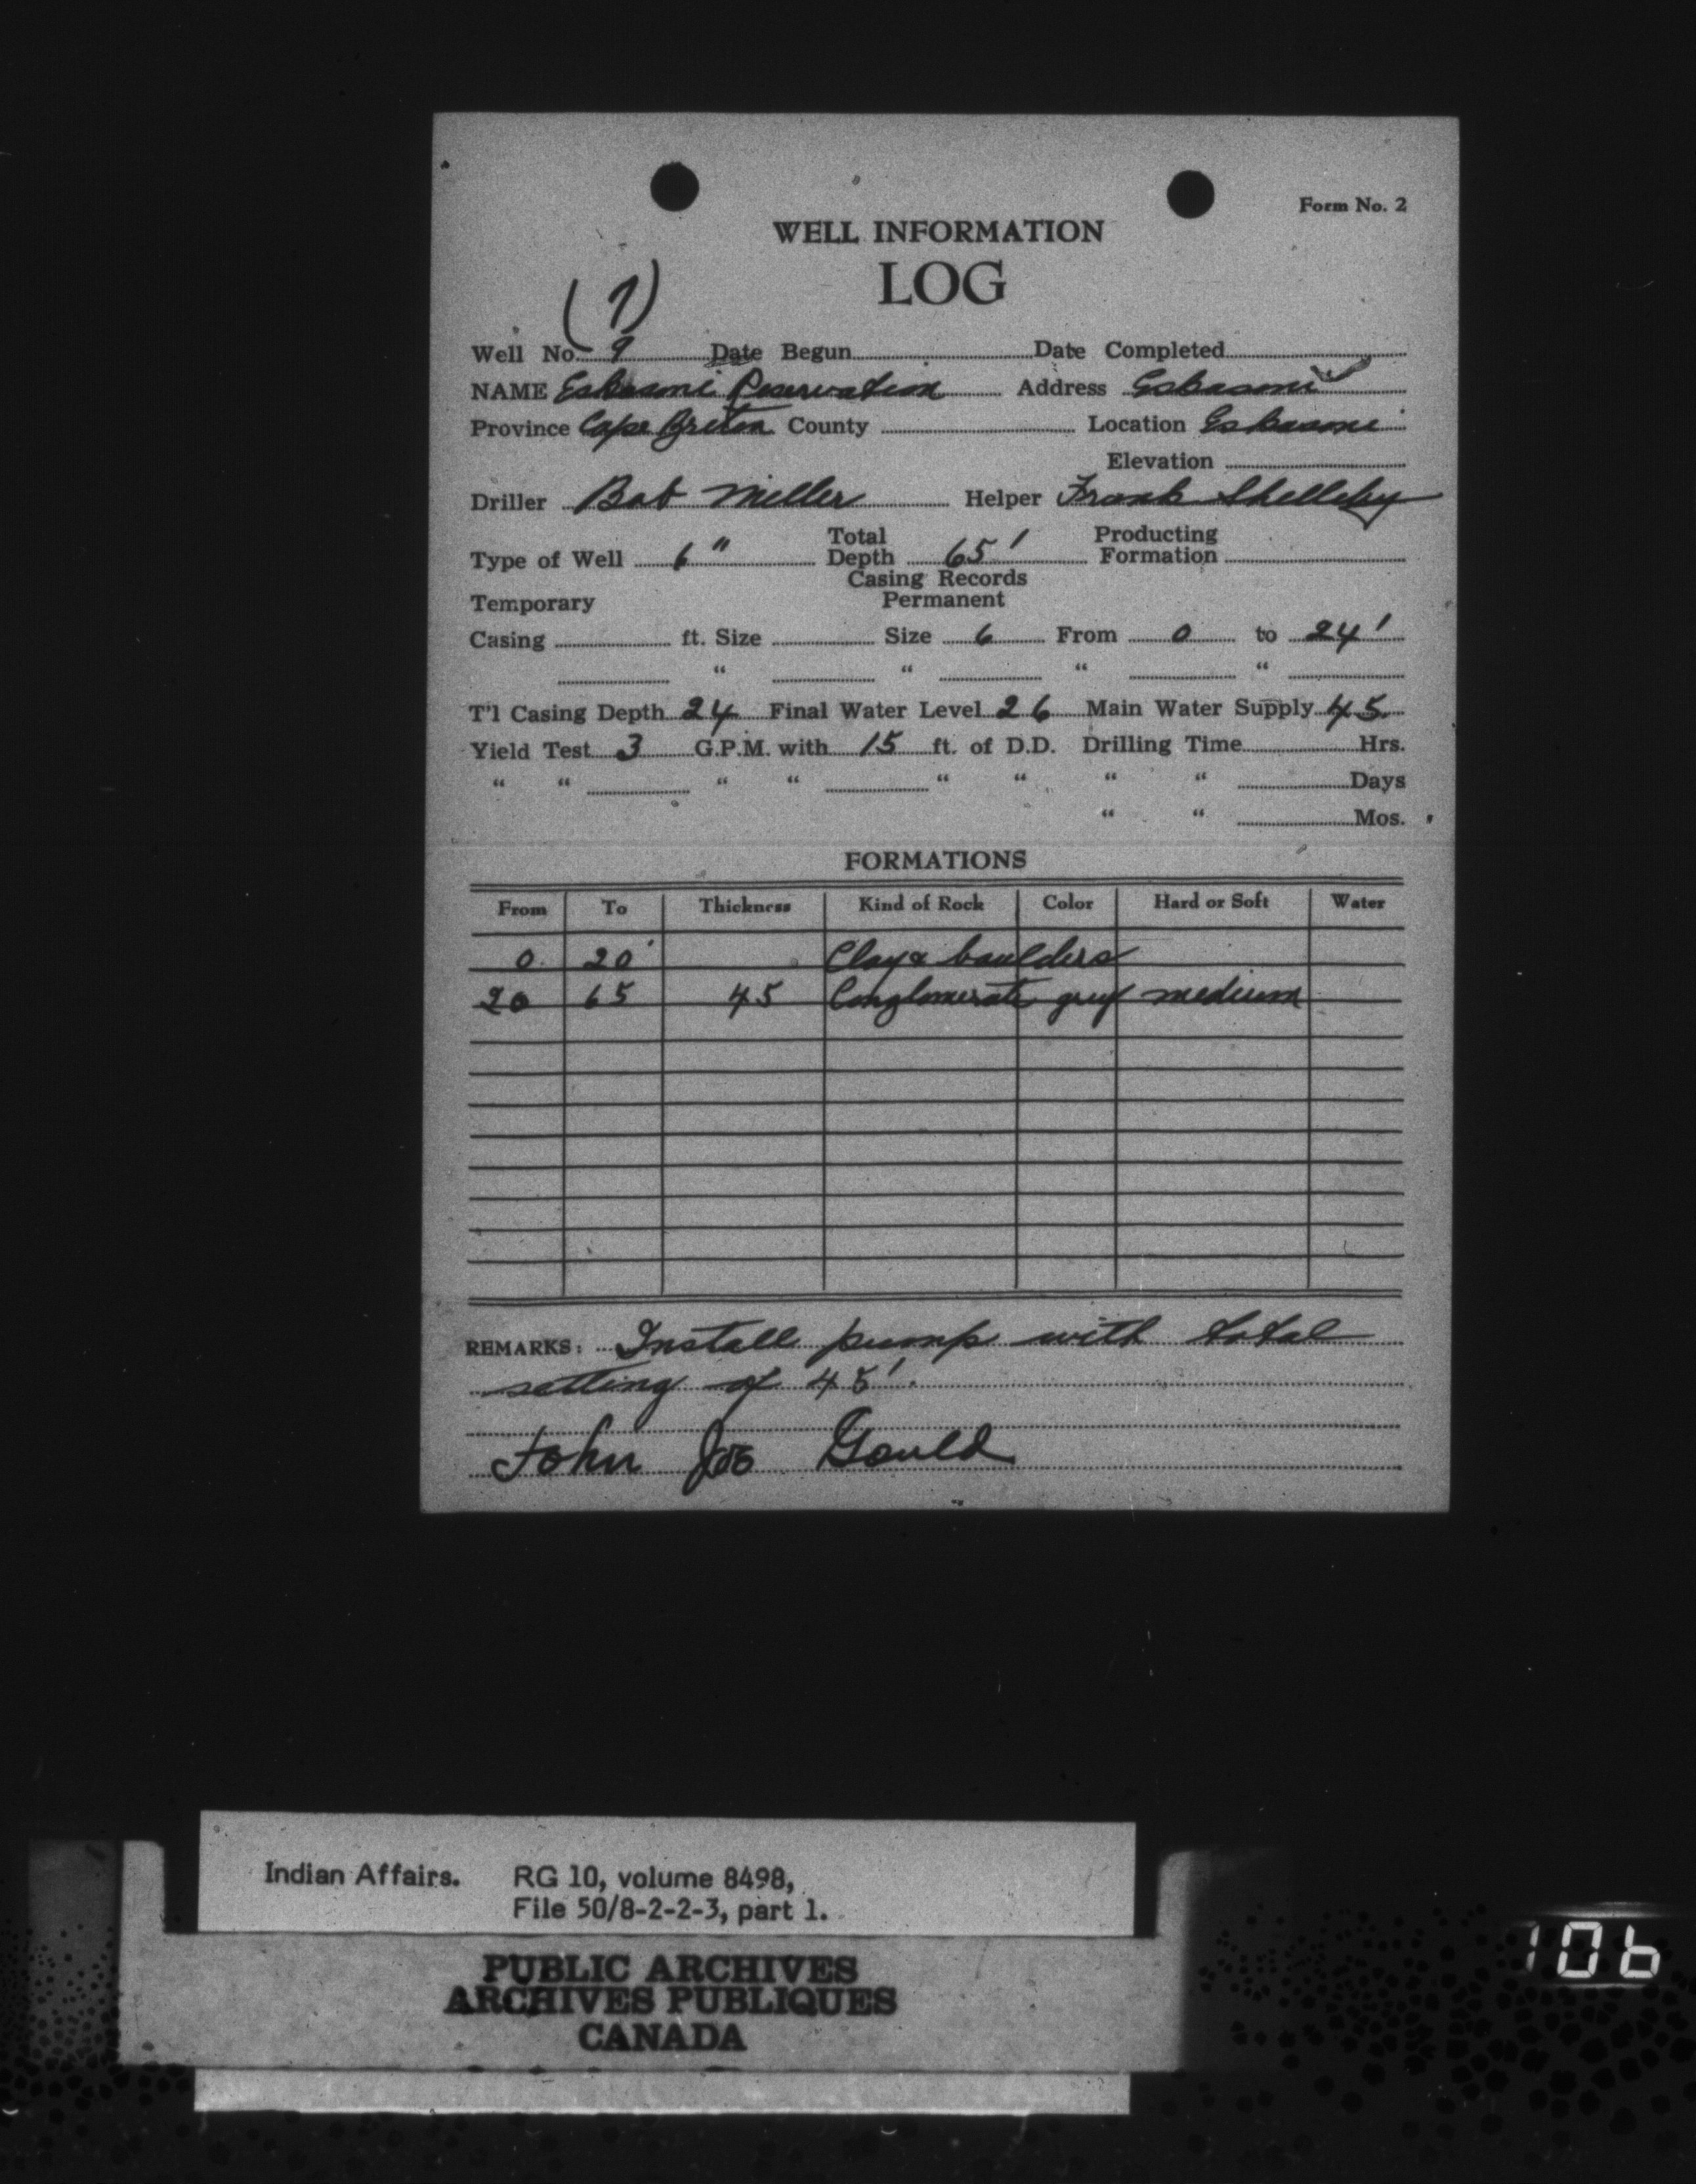 Form No. 2
WELL INFORMATION
LOG
(7)
Well No. 9 Date Begun Date Completed
NAME Eskasoni Reservation Address Eskasoni
Province Cape Breton County Location Eskasoni
Elevation
Driller Bob Miller Helper Frank Shelleby
Type of Well 6" Total Depth 65' Producting Formation
Casing Records
Temporary Permanent
Casing ft. Size Size 6 From 0 to 24'
" " " "
T'l Casing Depth 24 Final Water Level 26 Main Water Supply 45
Yield Test 3 G.P.M. with 15 ft. of D.D. Drilling Time Hrs.
" " " " " " " " Days
" " Mos.
FORMATIONS
From To Thickness Kind of Rock Color Hard or Soft Water
0 20' Clay & boulders
20 65 45 Conglomerate grey medium
REMARKS: Install pump with total
setting of 45'.
John Joe Gould
Indian Affairs. RG 10, volume 8498,
File 50/8-2-2-3, part 1.
PUBLIC ARCHIVES
ARCHIVES PUBLIQUES
CANADA
106